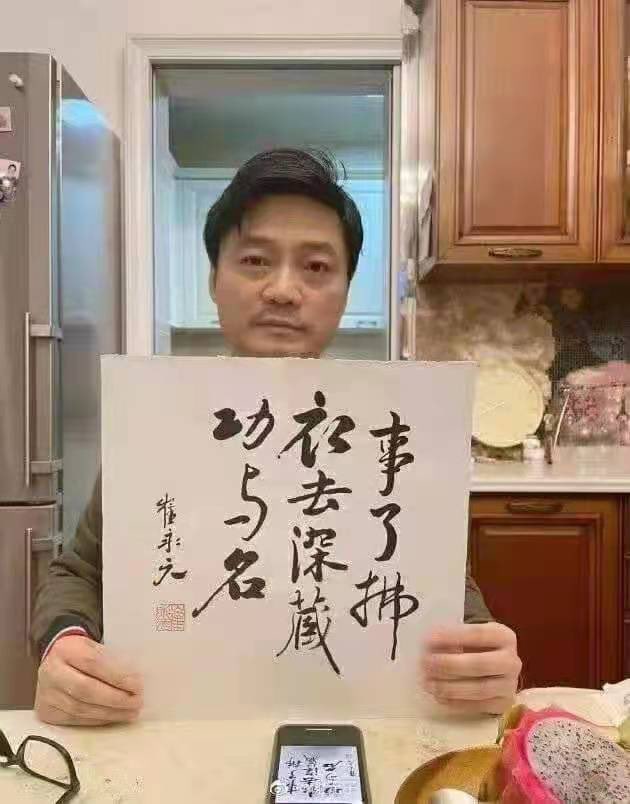 事了拂
衣去深藏
功与名
崔永元